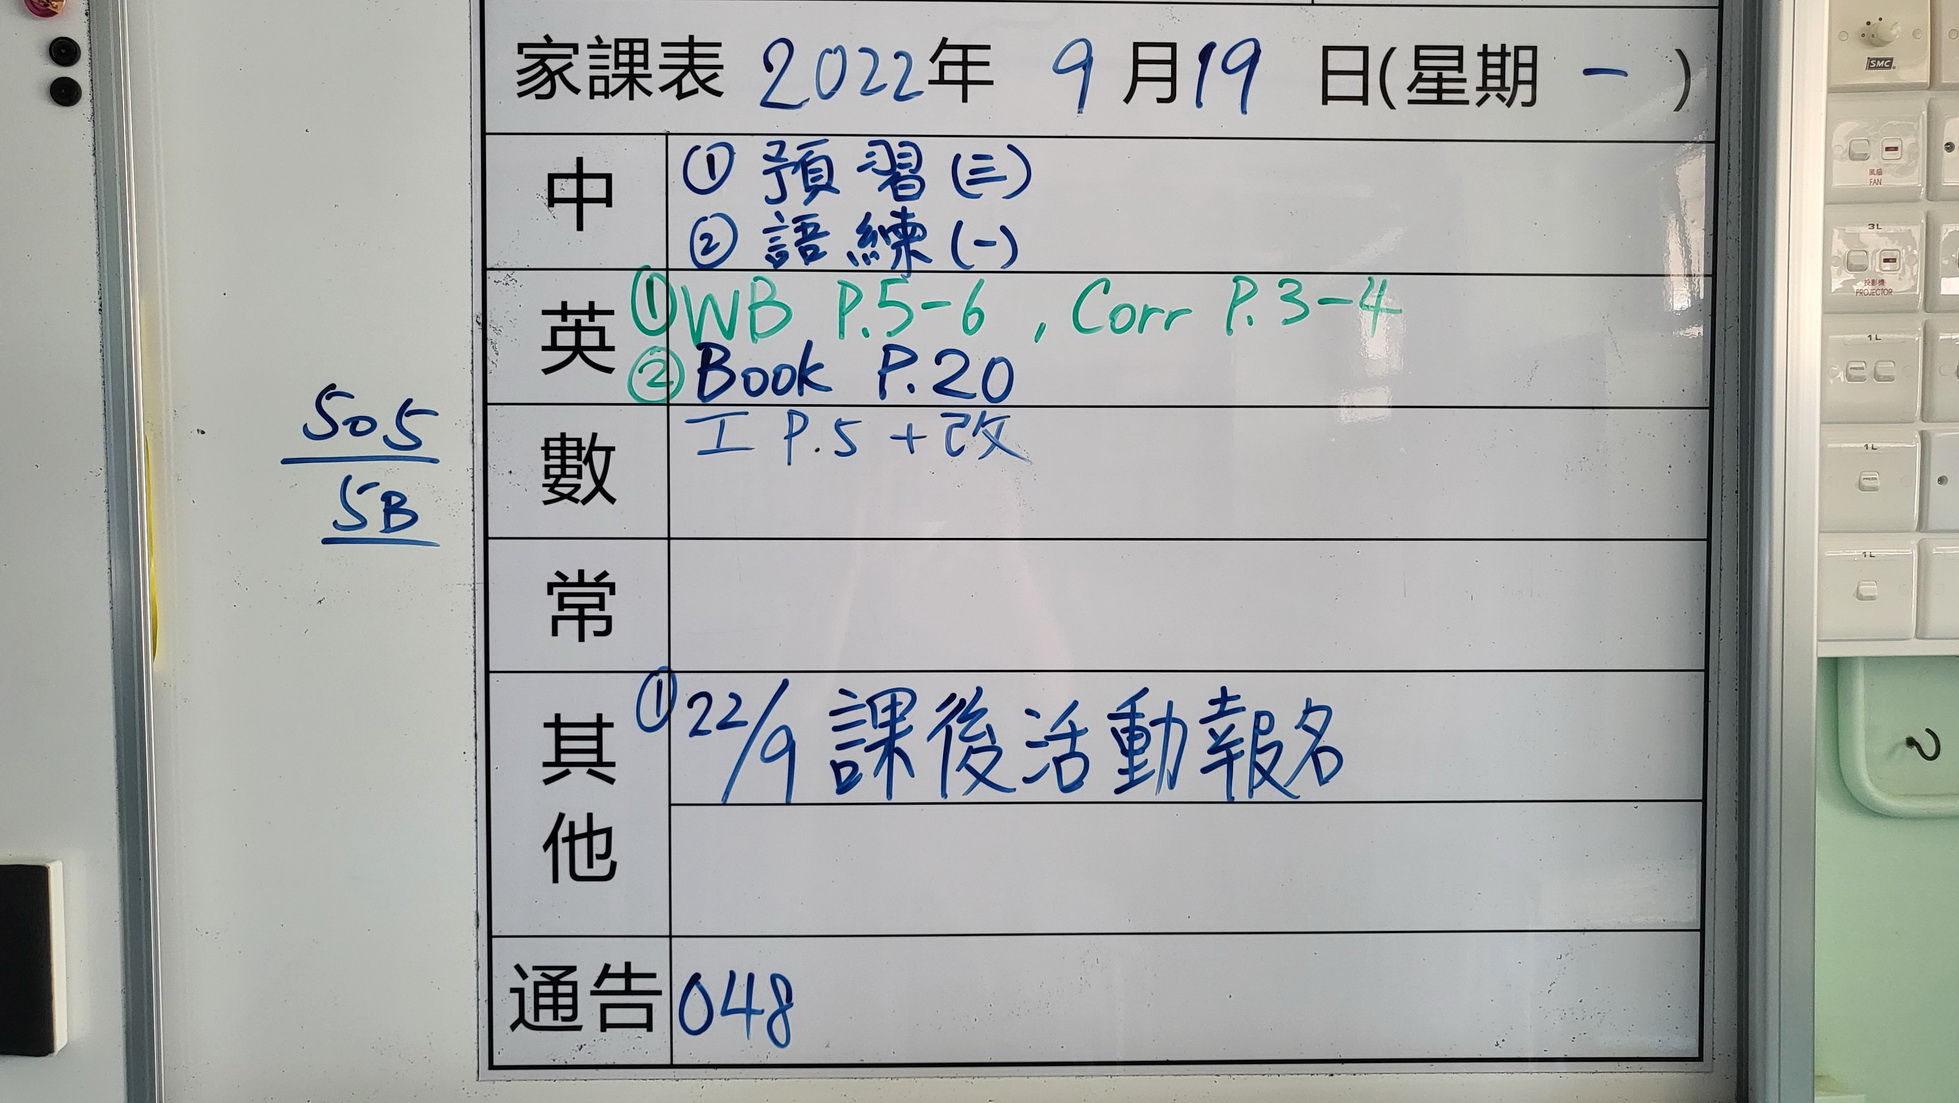 家課表 2022年 9月19日(星期一)
中
① 預習(三)
② 語練(一)
英
① WB P.5-6 , Corr P.3-4
② Book P.20
數
工 P.5 + 改
常
其他
① 22/9 課後活動報名
通告
048
505
5B
SMC
風扇
FAN
3L
投影機
PROJECTOR
1L
1L
1L